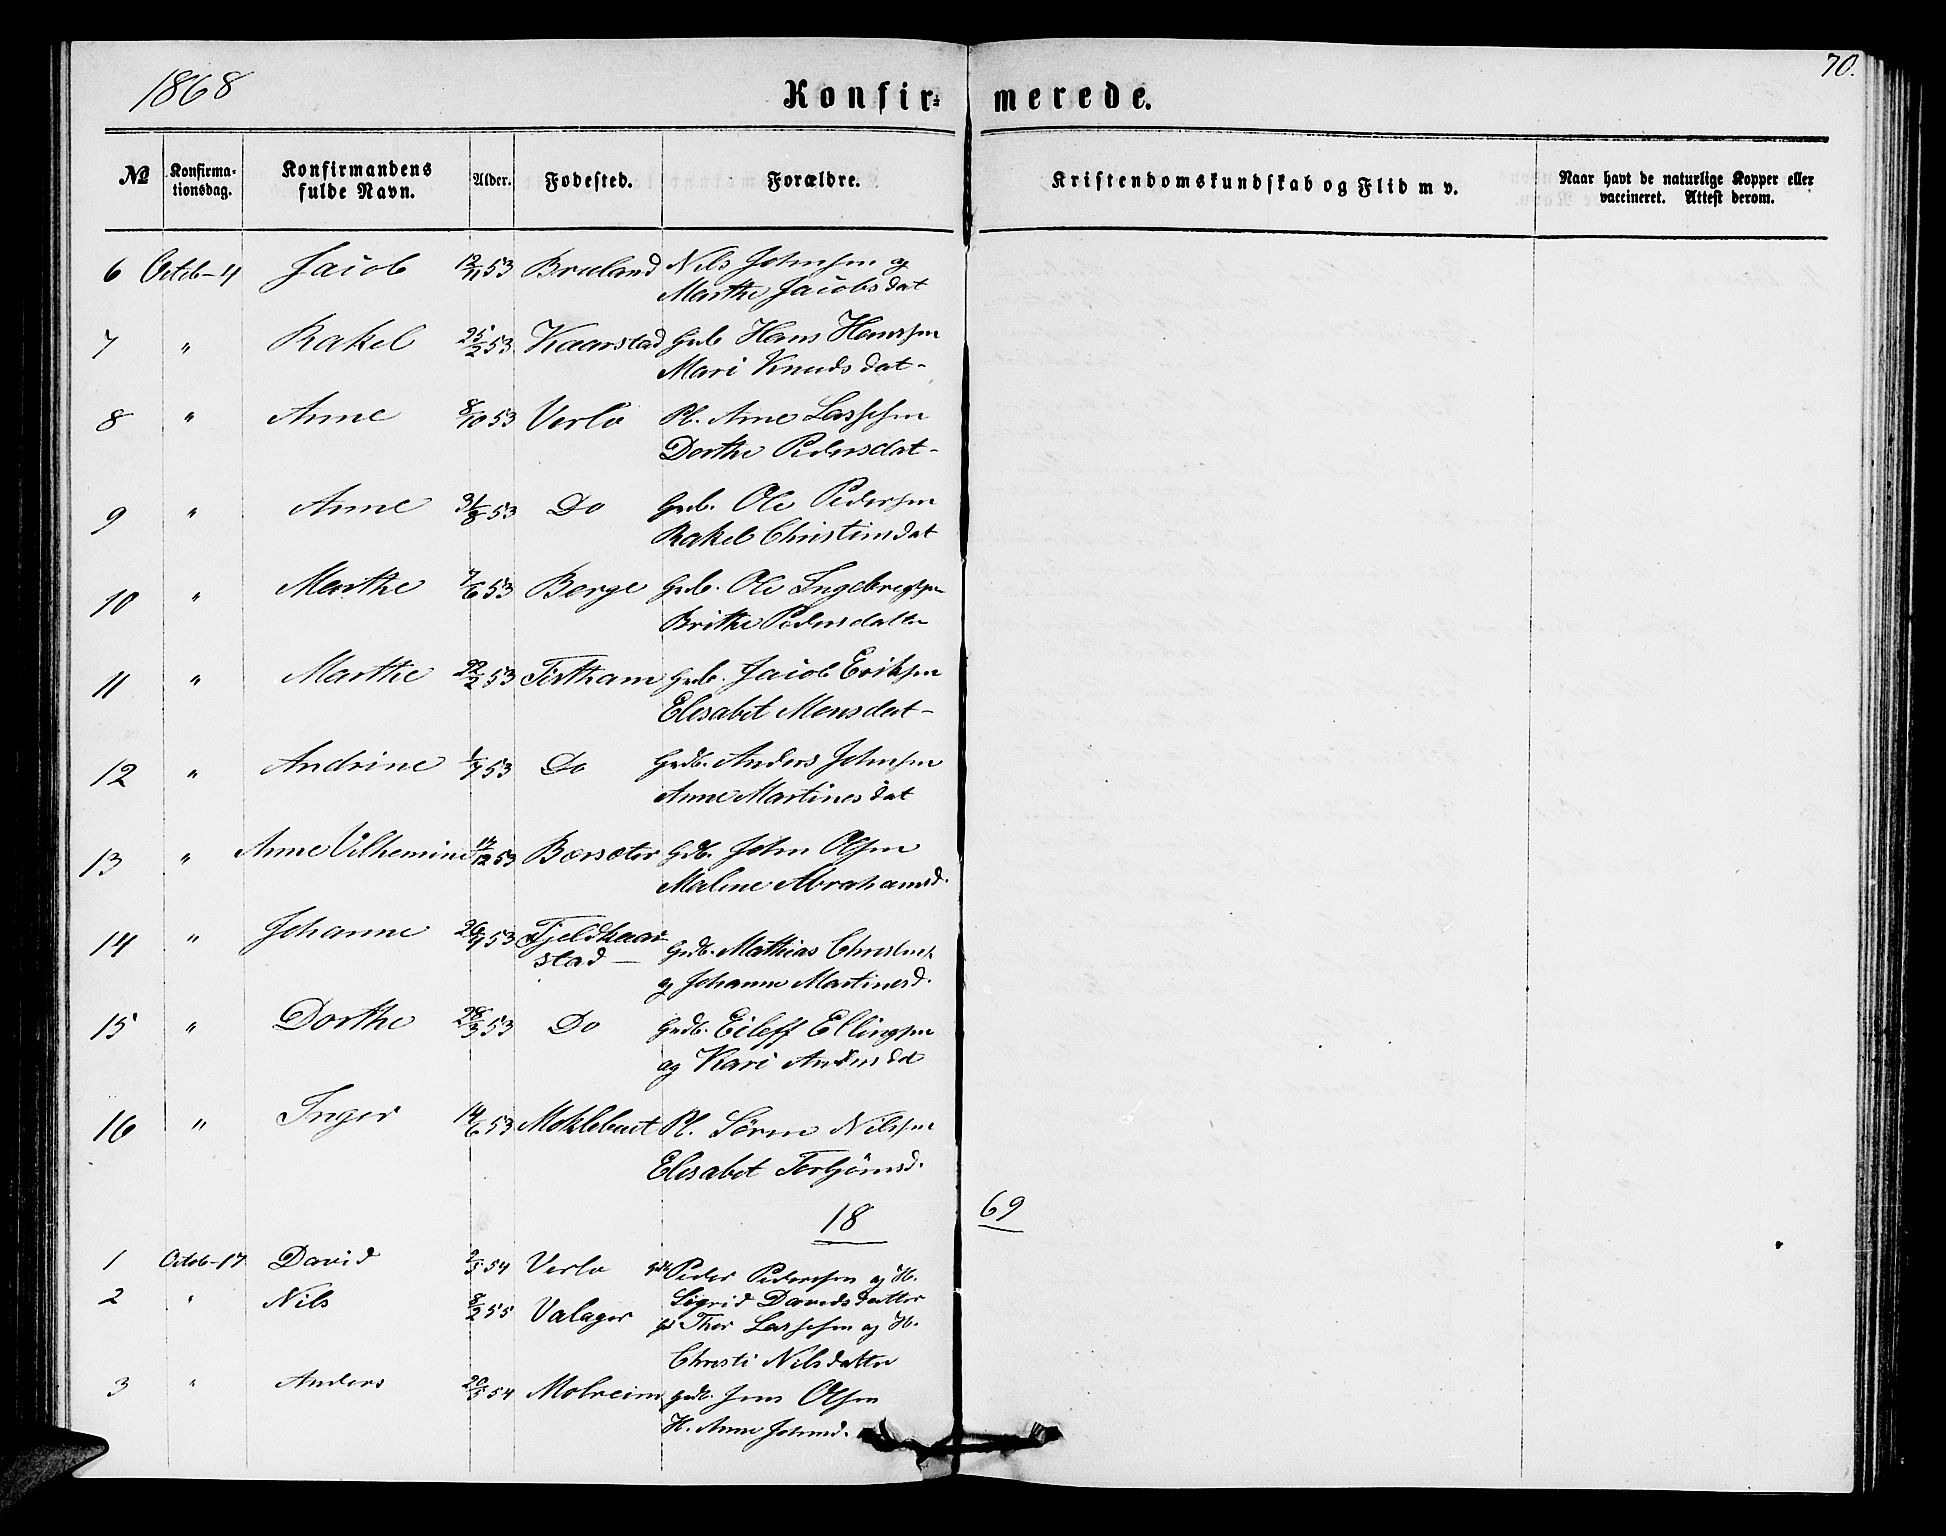 1868
Konfir- merede.
70.
№ Konfirma- tionsdag. Konfirmandens fulde Navn. Alder. Fødested. Forældre. Kristendomskundskab og Flid m v. Naar havt de naturlige Kopper eller vaccineret. Attest derom.
6 Octob-4 Jacob 12/11 53 Braland Nils Johnsen og
Marthe Jacobsdat
7 " Rakel 25/2 53 Kaarstad Grb Hans Hanssen
Mari Knudsdat-
8 " Anne 8/10 53 Verlo Pl. Arne Lassesen
Dorthe Pedersdat-
9 " Anne 31/8 53 Do Grb. Ole Pedersen
Rakel Christinsdat
10 " Marthe 7/6 53 Berge Grb. Ole Ingebregtsen
Brithe Pedersdatter
11 " Marthe 22/2 53 Tistham Grb. Jacob Eriksen
Elesabet Monsdat-
12 " Andrine 1/7 53 Do Grdb. Anders Johnsen
Anne Martinesdat
13 " Anne Vilhemine 14/12 53 Børsæter Gdb. John Olsen
Malene Abrahamsd.
14 " Johanne 26/9 53 Fjeldkaar-
stad – Grdb. Mathias
og Johanne Martinesd.
15 " Dorthe 28/3 53 Do Grdb. Eileff Ellingsen
og Kari
16 " Inger 14/6 53 Moklebust Pl. Sören Nilssen
Elesabet Torbjörnsd.
18 69
1 Octob-17 David 2/5 54 Verlo Peder Pedersen og H.
Sigrid Davidsdatter
2 " Nils 8/2 55 Valager Thor Lassesen og H.
Christi Nilsdatter
3 " Anders 20/5 54 Molreim Grdb. Jens Olsen
H. Anne Johnsd.